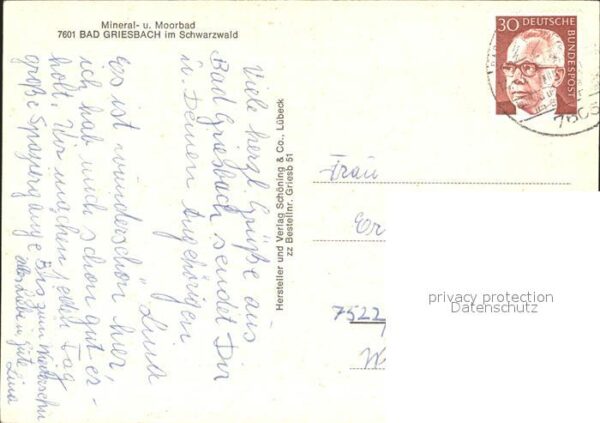 Mineral- u. Moorbad
7601 BAD GRIESBACH im Schwarzwald
30 DEUTSCHE
BUNDESPOST
Viele herzl. Grüße aus
Bad Griesbach sendet Dir
u. Deinen Angehörigen
Lina
Es ist wunderschön hier,
ich hab mich schon gut er-
holt. Wir machen jeden Tag
große Spaziergänge. Bis zum Wiedersehn
alles Liebe u. Gute
Lina
Hersteller und Verlag Schöning & Co., Lübeck
zz Bestellnr. Griesb 51
Frau
Er
7522
privacy protection
Datenschutz